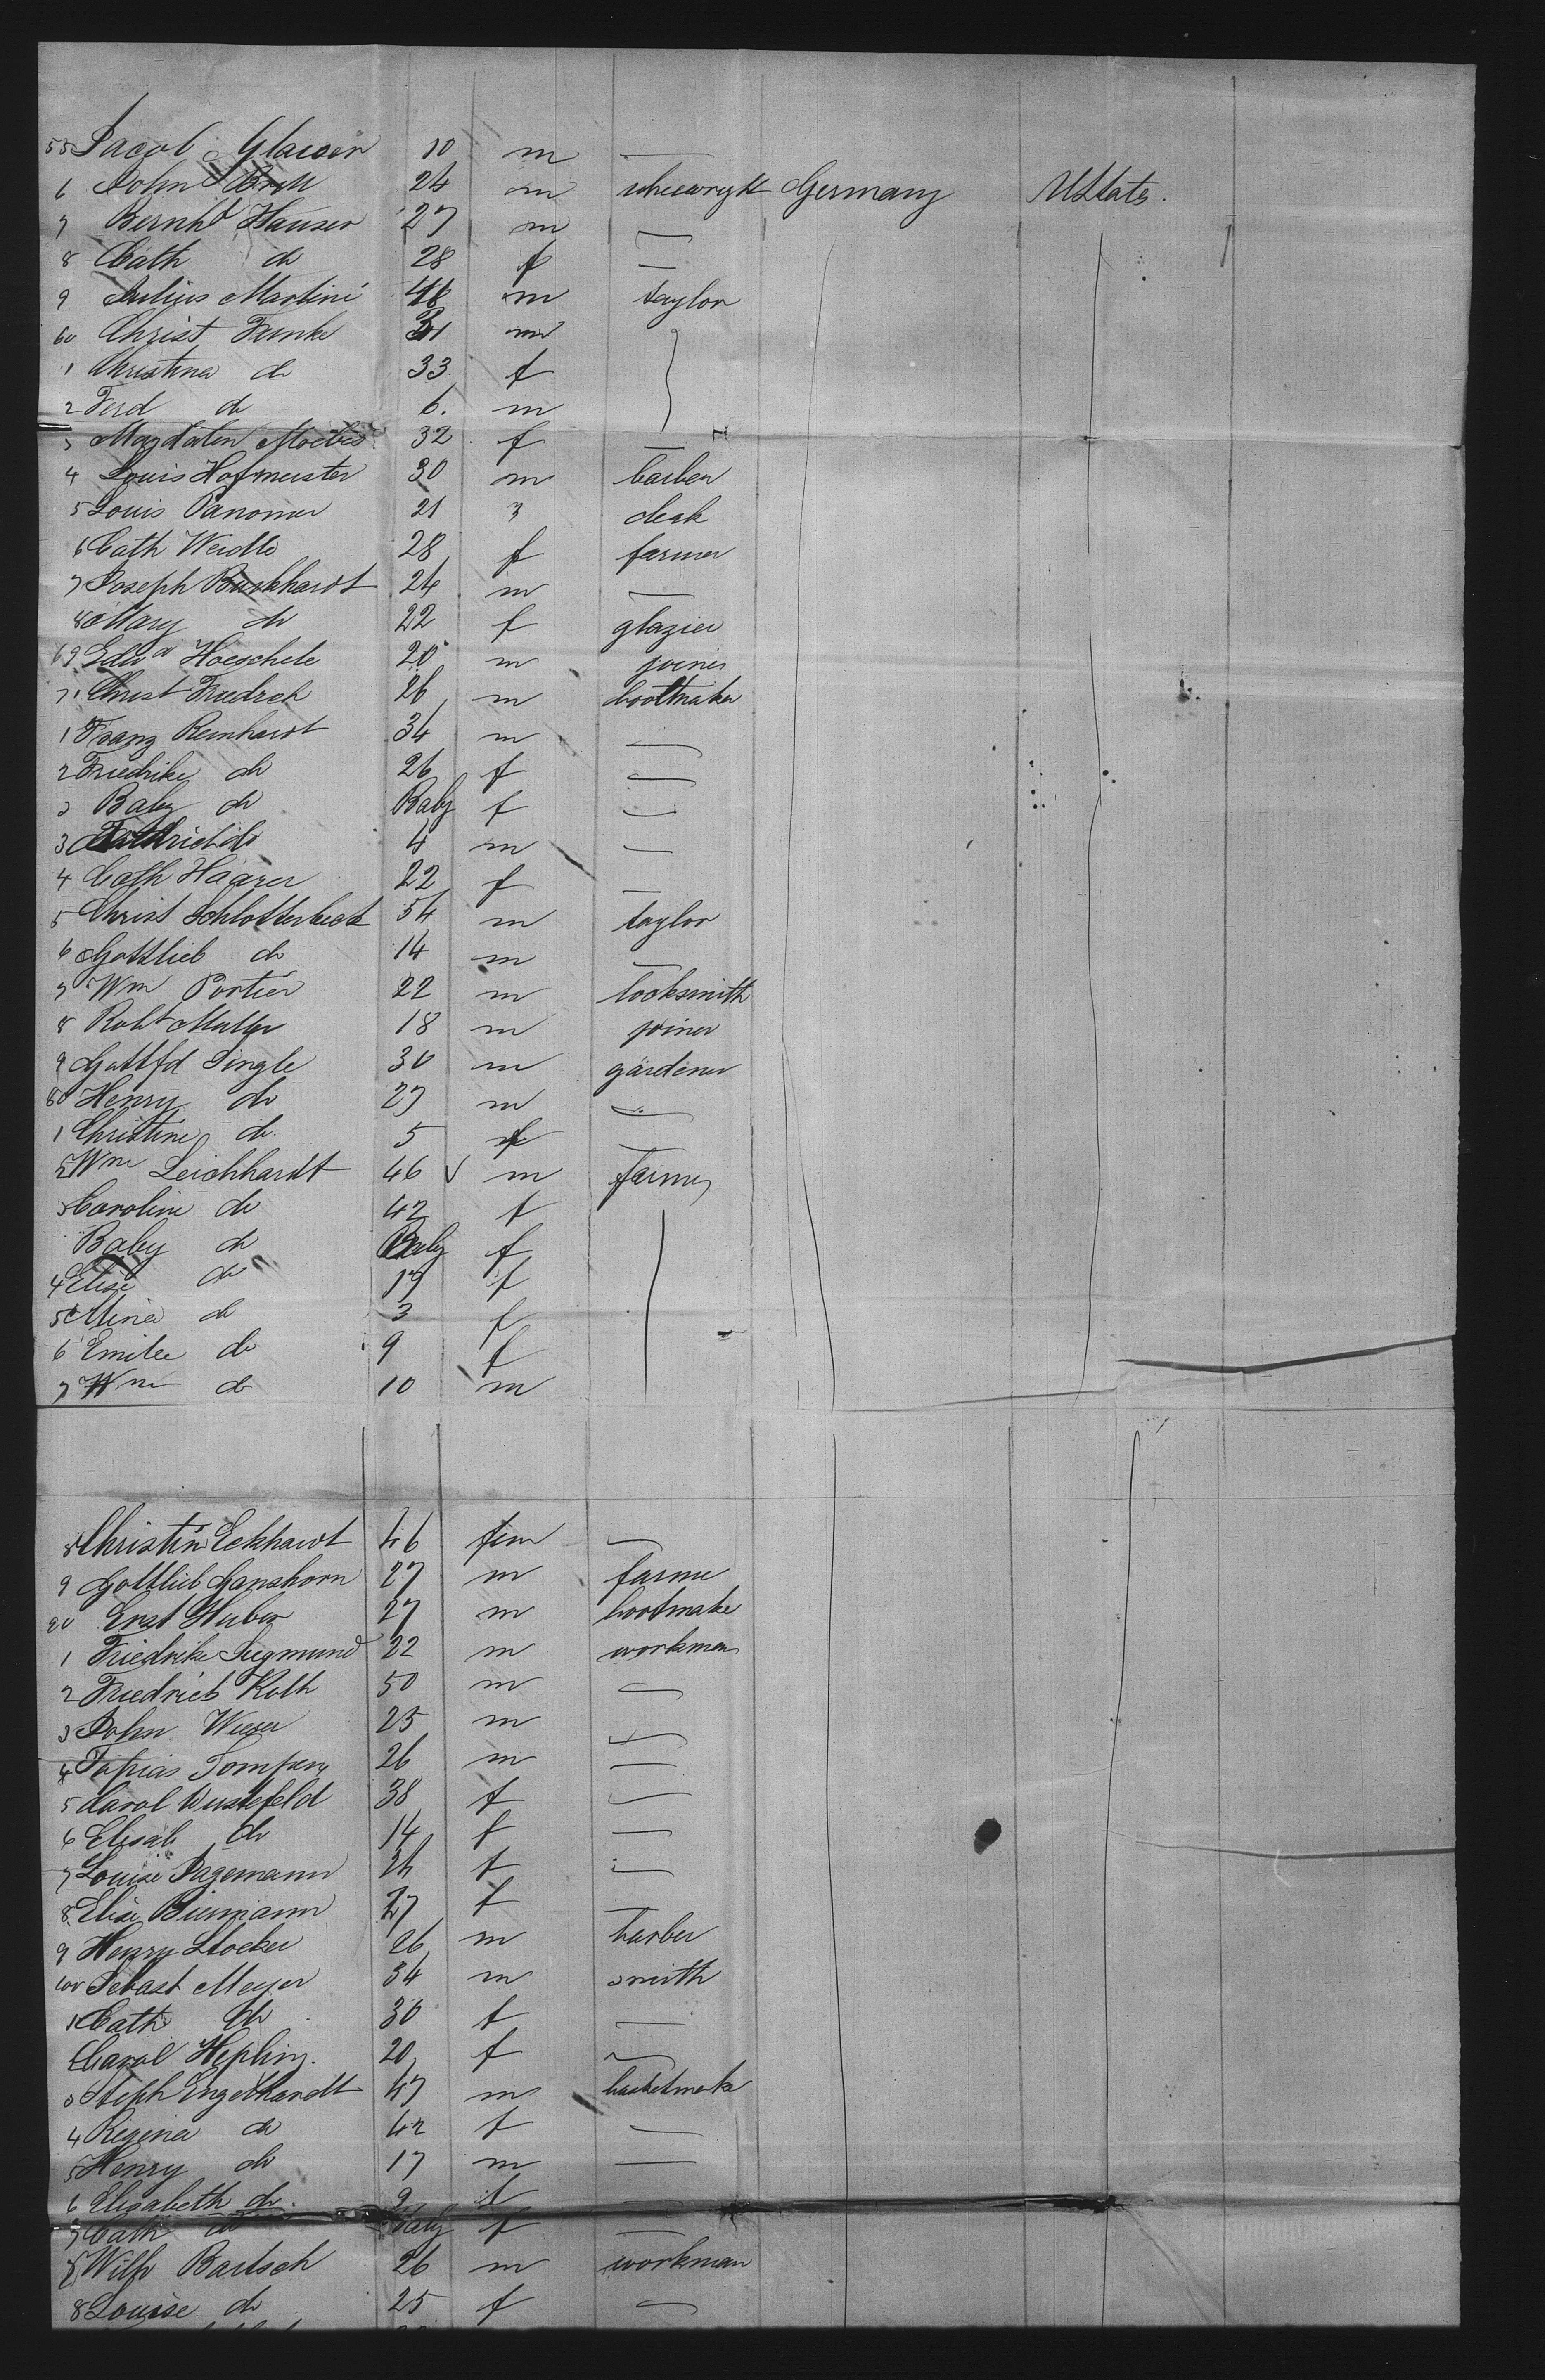 55 Jacob Glaeser 10 m —
6 John Broll 24 m wheewryt Germany UStats.
7 Bernhd Hauser 27 m —
8 Cath do 28 f —
9 Julius Martini 48 m taylor
60 Christ Funke 31 m
1 Christina do 33 f
2 Ferd do 6. m
3 Magdalen Moebes 32 f —
4 Louis Hofmeister 30 m barber
5 Louis 21 clerk
6 Cath 28 f farmer
7 Joseph Burkhardt 24 m —
8 Mary do 22 f glazier
69 Edwd Hoeschele 20 m joiner
7 Christ Friedrch 26 m bootmaker
1 Franz Reinhardt 34 m —
2 Friedrike do 26 f —
3 Baby do Baby f —
3 do 4 m —
4 Cath Haarer 22 f —
5 Christ Schlotterbeck 54 m taylor
6 Gottlieb do 14 m —
7 Wm Portier 22 m locksmith
8 Robt Muller 18 m joiner
9 Gottfd Single 30 m gardener
80 Henry do 27 m —
1 Christine do. 5 f —
2 Wm Leichhardt 46 m farmer
3 Caroline do 42 f
Baby do Baby f
4 Elise do 17 f
5 Mina do 3 f
6 Emilie do 9 f
7 Wm do 10 m
8 Christin Eckhardt 46 fem —
9 Gottlieb Ganshorn 27 m farme
90 Ernst Huber 27 m bootmake
1 Friedrike Siegmund 22 m workman
2 Friedrich Roth 50 m —
3 John Wieser 25 m —
4 26 m —
5 Carol Wustefeld 38 f —
6 Elisab do 14 f —
7 Louise Pagemann 24 f —
8 Elise Biermann 27 f —
9 Henry Stocker 26 m barber
100 Sebast Meyer 34 m smith
1 Cath do 30 f —
2 Carol Hepling. 20 f —
3 Steph Engelhardt 47 m basketmak
4 Regina do 42 f —
5 Henry do 17 m —
6 Elisabeth do. 9 f
7 Cath do Baby f —
8 Wilh Bartsch 26 m workman
8 Louise do 25 f —